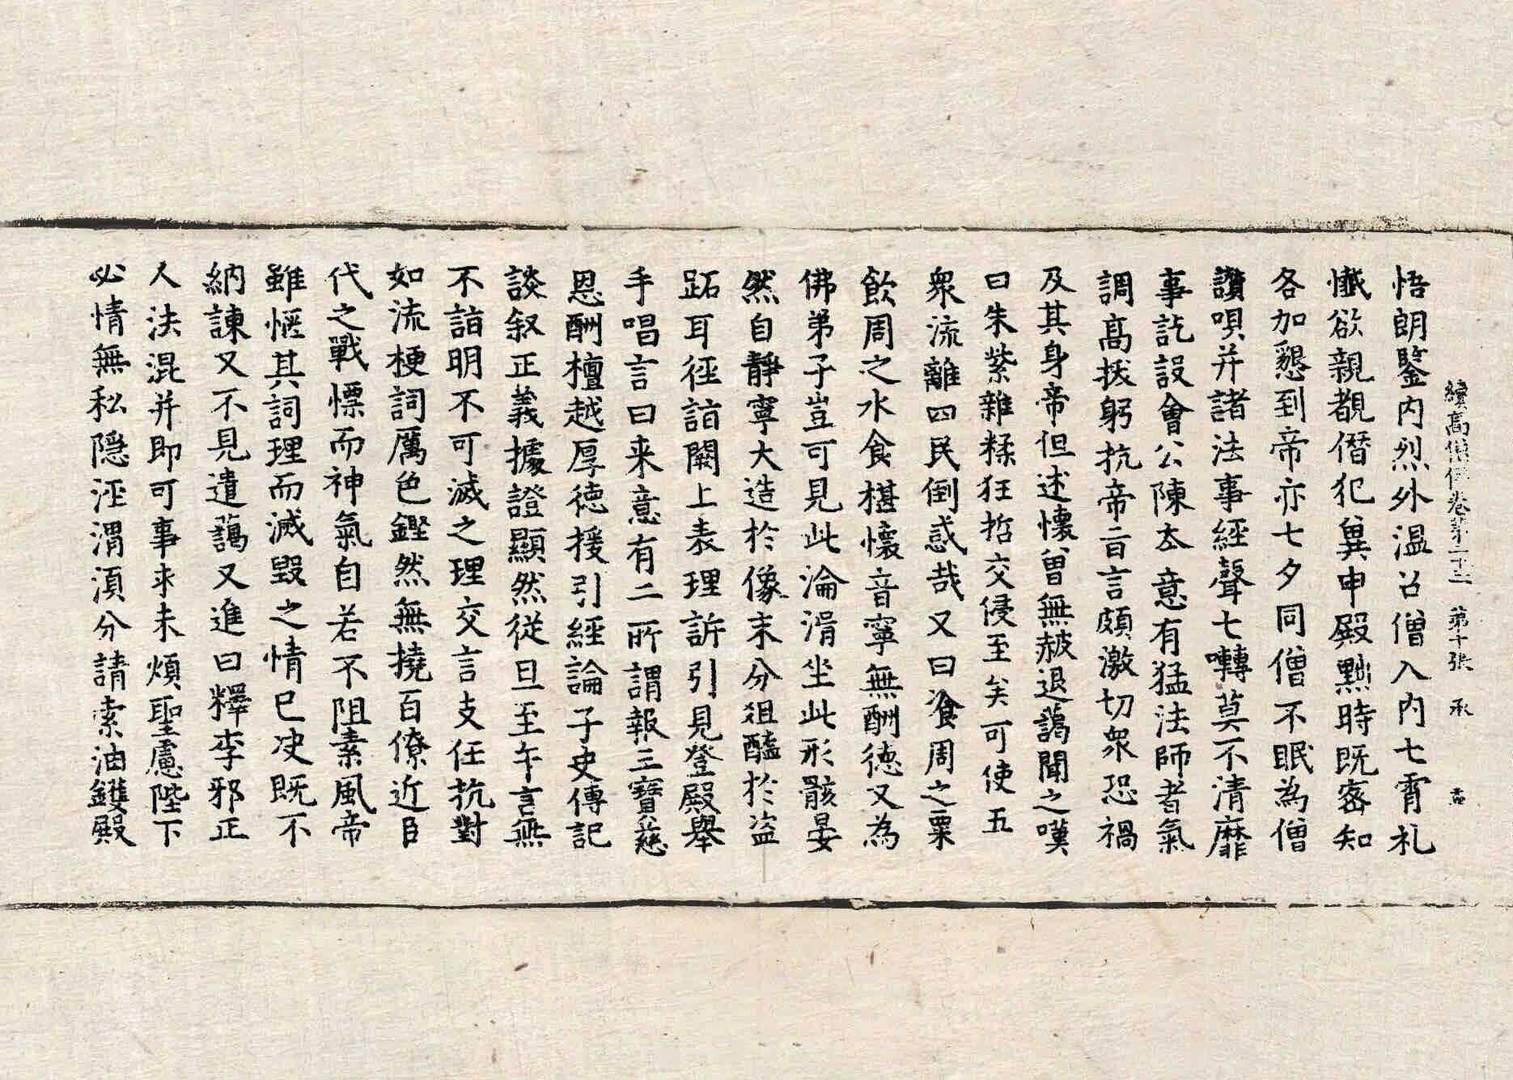 續高僧傳卷第二十三 第十張 承
悟朗鑒內烈外温召僧入內七霄礼
懺欲親覩僭犯兾申殿黜時既密知
各加懇到帝亦七夕同僧不眠為僧
讚唄并諸法事經聲七囀莫不清靡
事訖設會公陳夲意有猛法師者氣
調高拔躬抗帝旨言頗激切衆恐禍
及其身帝但述懷曾無赧退藹聞之嘆
曰朱紫雜糅狂哲交侵至矣可使五
衆流離四民倒惑哉又曰飡周之粟
飲周之水食椹懷音寧無酬德又為
佛弟子豈可見此淪湑坐此形骸晏
然自靜寧大造於像末分俎醢於盜
跖耳徑詣闕上表理訴引見登殿舉
手唱言曰来意有二所謂報三寶慈
恩酬檀越厚德援引經論子史傳記
談叙正義據證顯然從旦至午言無
不詣明不可滅之理交言支任抗對
如流梗詞厲色鏗然無撓百僚近臣
代之戰慄而神氣自若不阻素風帝
雖惬其詞理而滅毀之情已决既不
納諫又不見遣藹又進曰釋李邪正
人法混并即可事求未煩聖慮陛下
必情無私隱涇渭湏分請索油鑊殿